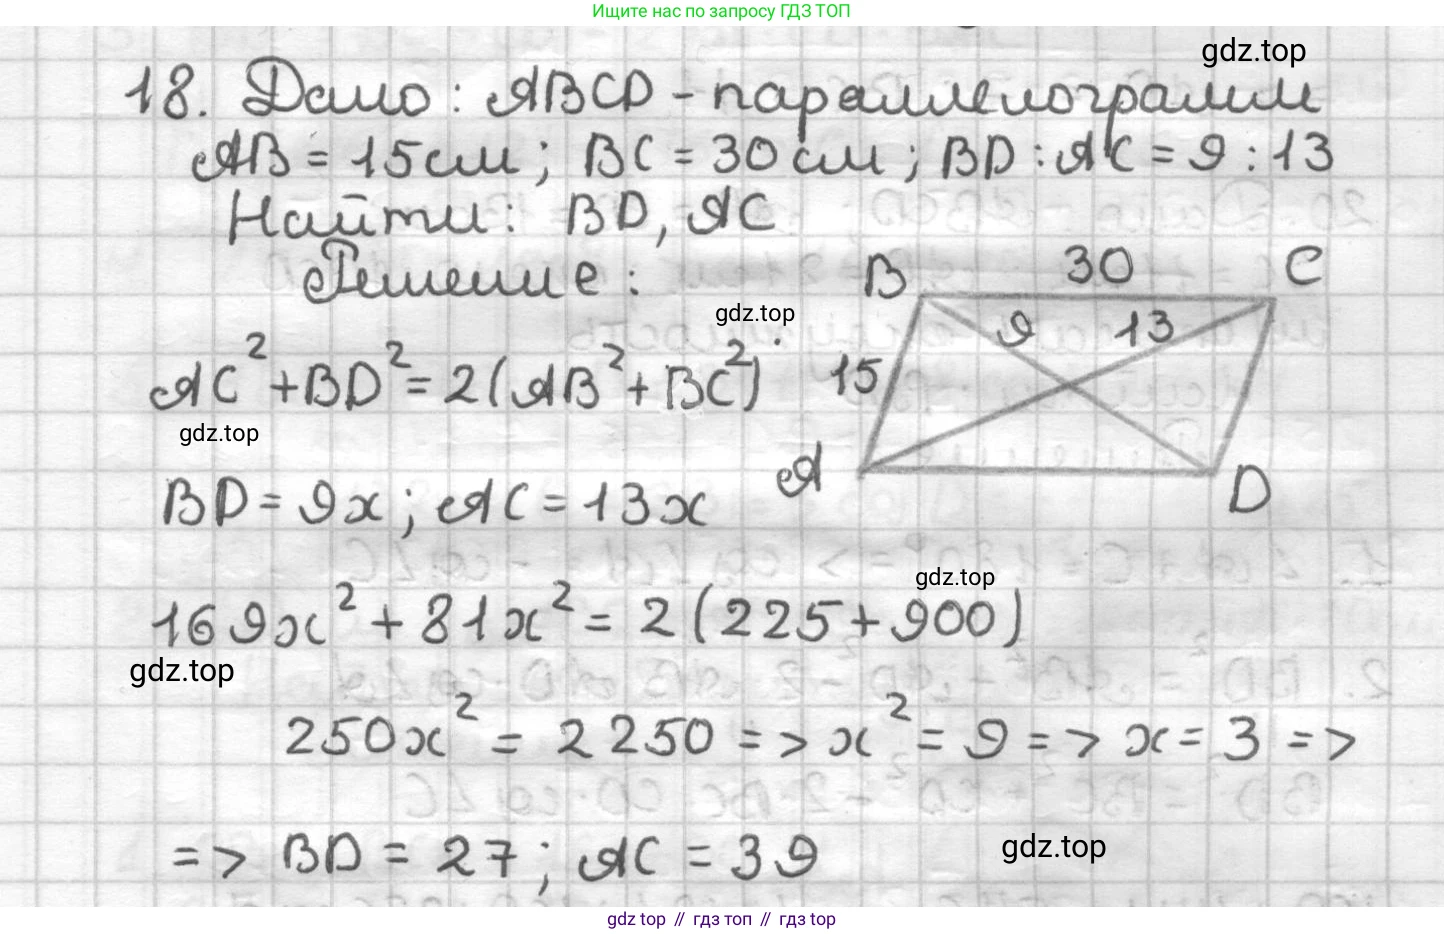 Ищите нас по запросу ГДЗ ТОП
gdz.top
18. Дано: ABCD - параллелограмм
AB = 15 см; BC = 30 см; BD : AC = 9 : 13
Найти: BD, AC
Решение:
B 30 C
gdz.top
9 13
AC² + BD² = 2(AB² + BC²)
15
gdz.top
A D
BD = 9x; AC = 13x
gdz.top
169x² + 81x² = 2(225 + 900)
gdz.top
250x² = 2250 => x² = 9 => x = 3 =>
=> BD = 27; AC = 39
gdz.top
gdz top // гдз топ // гдз top